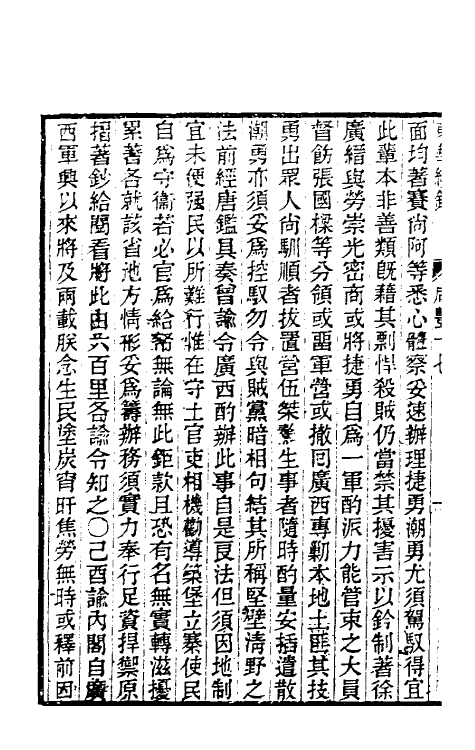 面均著賽尚阿等悉心體察妥速辦理捷勇潮勇尤須駕馭得宜
此輩本非善類既藉其剽悍殺賊仍當禁其擾害示以鈐制著徐
廣縉與勞崇光密商或將捷勇自爲一軍酌派力能管束之大員
督飭張國樑等分領或留軍營或撤囘廣西專勦本地土匪其技
勇出眾人尚馴順者拔置營伍桀驁生事者隨時酌量安插遣散
潮勇亦須妥爲控馭勿令與賊黨暗相句結其所稱堅壁淸野之
法前經唐鑑具奏曾諭令廣西酌辦此事自是良法但須因地制
宜未便强民以所難行惟在守土官吏相機勸導築堡立寨使民
自爲守衞若必官爲給帑無論無此鉅款且恐有名無實轉滋擾
累著各就該省地方情形妥爲籌辦務須實力奉行足資捍禦原
摺著鈔給閱看將此由六百里各諭令知之〇己酉諭內閣自廣
西軍興以來將及兩載朕念生民塗炭宵旰焦勞無時或釋前因